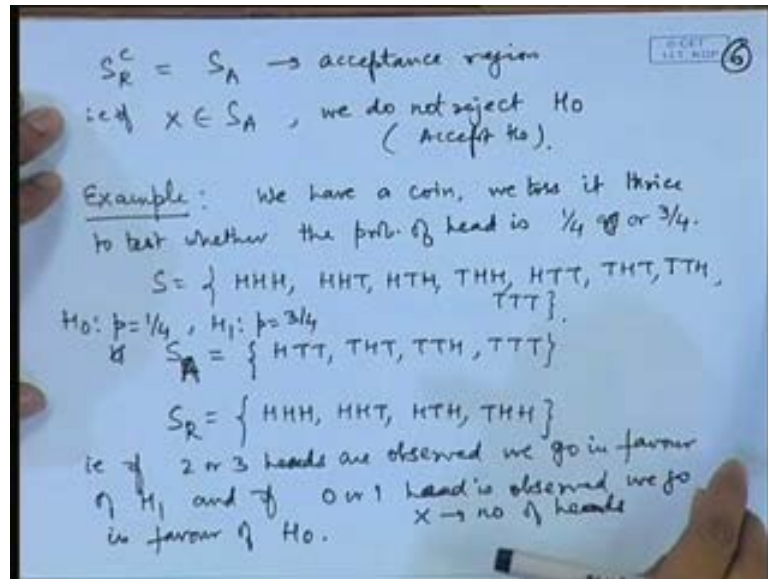 S_R^c = S_A → acceptance region
ie if X ∈ S_A , we do not reject H0
( Accept H0 ).
6
Example : We have a coin, we toss it thrice
to test whether the prob. of head is 1/4 or 3/4.
S = { HHH, HHT, HTH, THH, HTT, THT, TTH,
TTT }.
H0: p=1/4 , H1: p=3/4
S_A = { HTT, THT, TTH, TTT }
S_R = { HHH, HHT, HTH, THH }
ie if 2 or 3 heads are observed we go in favour
of H1 and if 0 or 1 head is observed we go
in favour of H0.
X → no of heads